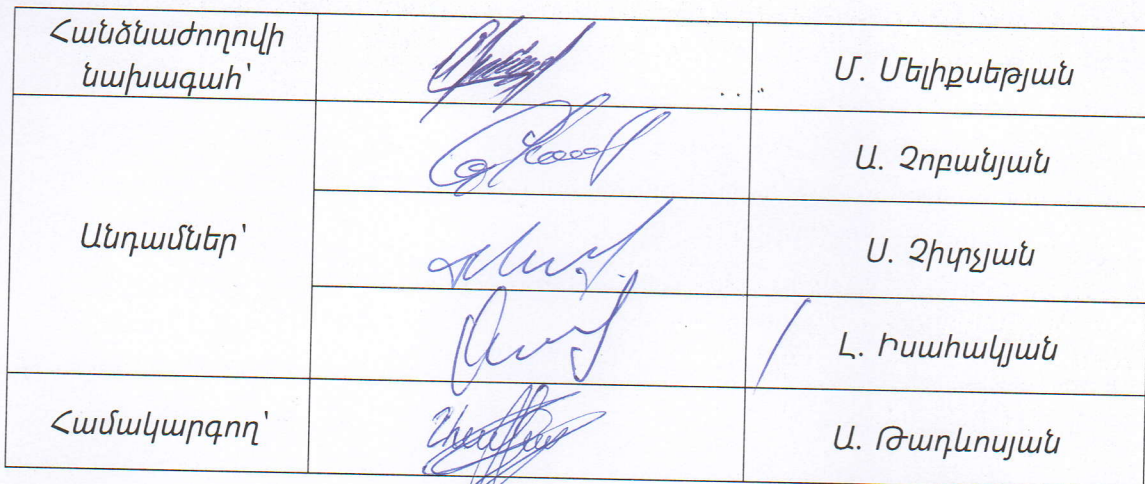 Հանձնաժողովի
նախագահ՝
Մ. Մելիքսեթյան
Ա. Չոբանյան
Անդամներ՝
Ս. Չիտչյան
Լ. Իսահակյան
Համակարգող՝
Ա. Թադևոսյան